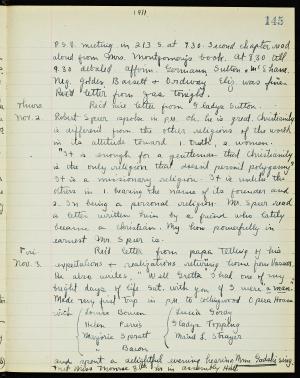 1911
145
P.S.V. meeting in 213 S. at 7.30. Second chapter read
aloud from Mrs. Montgomery's book. At 8.30 till
9.30 debated affirm. Germann, Sutton + McElhane.
Neg. Golden, Bassett + Ordway. Eliz. was fine.
Rec'd letter from Jas tonight.
Thurs. Rec'd nice letter from Gladys Sutton.
Nov. 2. Robert Speer spoke in P.M. Oh, he is great. Christianity
is different from the other religions of the world
in its attitude toward 1. truth, 2. women.
"It is enough for a gentleman that Christianity
is the only religion that is against polygamy."
It is a missionary religion. It is unlike the
others in 1. bearing the name of its founder and
2. In being a personal religion. Mr. Speer read
a letter written him by a friend who lately
became a Christian. My how powerfully in
earnest Mr. Speer is.
Fri. Rec'd letter from papa telling of his
Nov. 3. expectations + realizations returning home from Vassar.
He also writes, "Well Gretta I had one of my
bright days of life Sat. with you if I were a man."
Made very first trip in P.M. to Collingwood Opera House
with Louise Bowen Lucia Goray
Helen Ferris Gladys Topping
Marjorie Spratt Maud L. Strayer
Bacon
and spent a delightful evening hearing Mme Gadski sing.
Met Miss Monroe 8th in assembly Hall